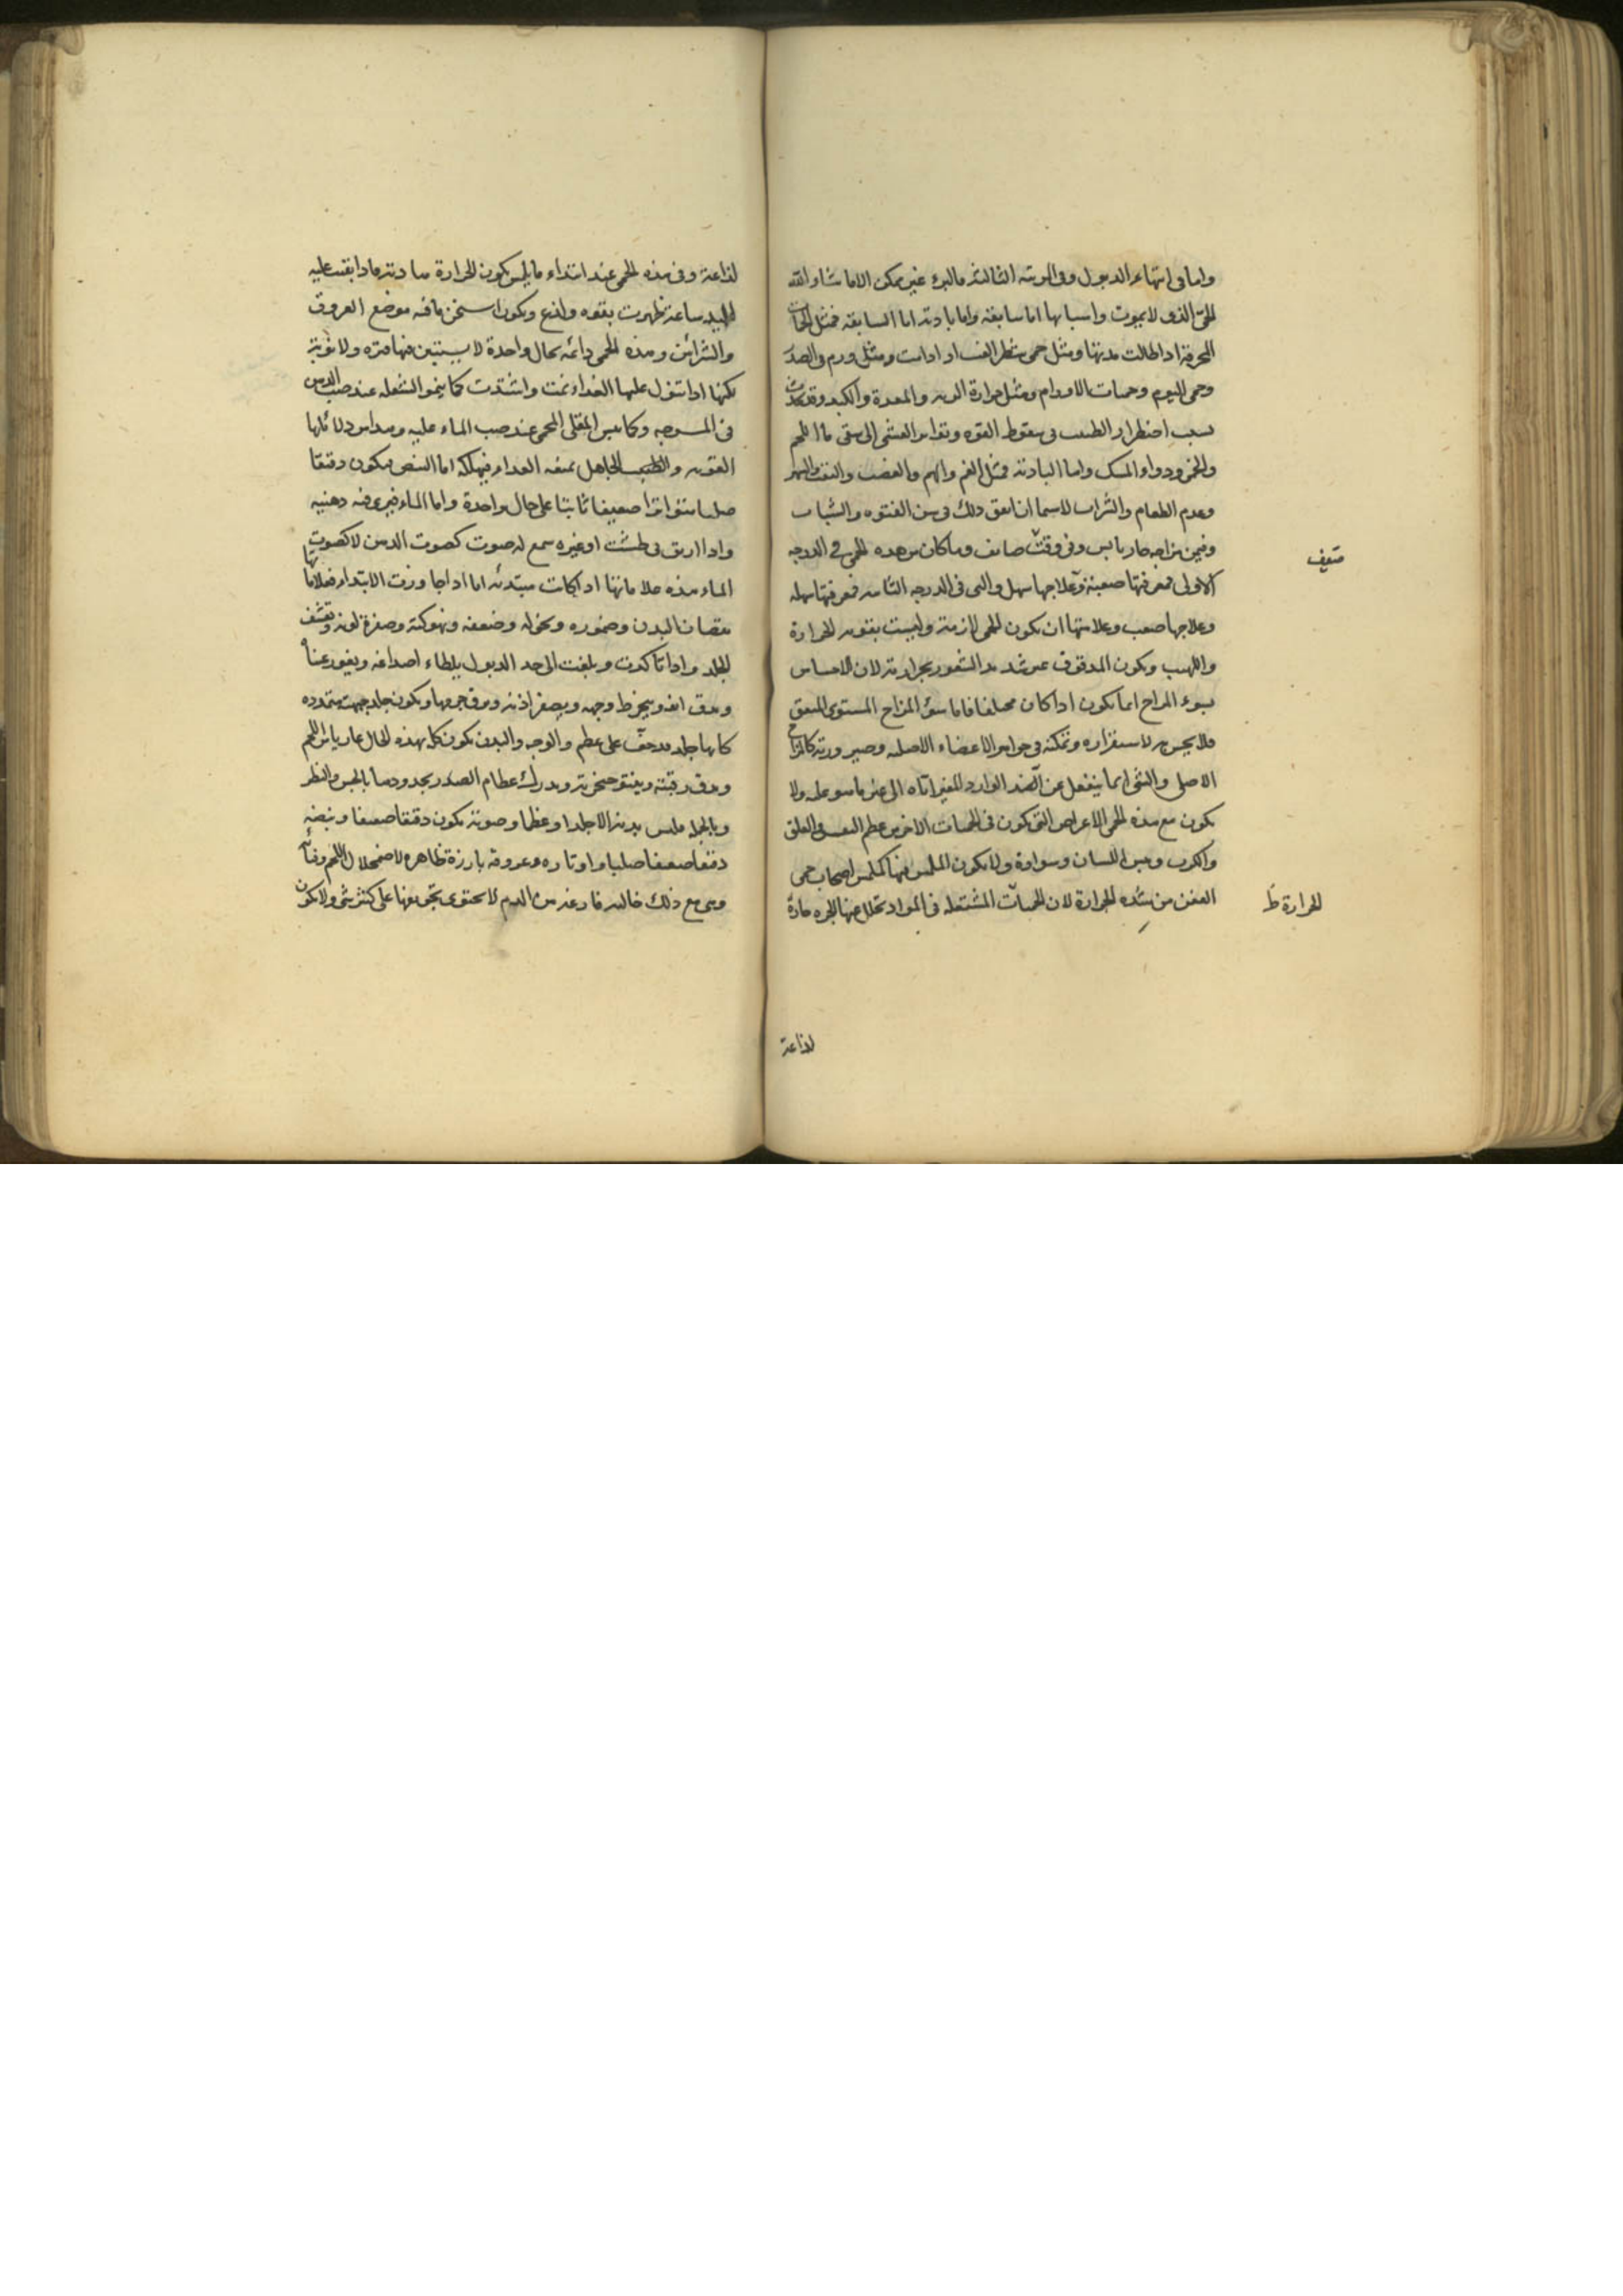 واما فى انتهاء الدبول وفى المرتبه الثالثه فالبرء غير ممكن الا ما شاء الله
الحى الذى لا يموت واسبابها اما سابقه واما بادئه اما السابقه فمثل الحميات
المحرقة اذا طالت مدتها ومثل حمى شطر الغب اذا دامت ومثل ورم الصدر
وحمى اليوم وحميات الاورام ومثل حرارة الريه والمعدة والكبد وقد يحدث
بسبب اضطرار الطبيب فى سقوط القوه وتواتر الغشى الى سقى ماء اللحم
والخمر ودواء المسك واما البادئه فمثل الغم والهم والغضب والتعب والسهر
وعدم الطعام والشراب لا سيما ان اتفق ذلك فى سن الفتوه والشباب
وفيمن مزاجه حار يابس وفى وقت صائف وما كان من هذه الحمى فى الدرجه
الاولى فمعرفتها صعبة وعلاجها سهل والتى فى الدرجه الثانيه فمعرفتها سهله
وعلاجها صعب وعلامتها ان تكون الحمى لازمة وليست بقويه الحرارة
واللهيب ويكون المدقوق غير شديد الشعور بحرارته لان الاحساس
بسوء المزاج انما يكون اذا كان مختلفا فاما سوء المزاج المستوى المتفق
فلا يحس به لاستقراره وتمكنه فى جواهر الاعضاء الاصليه وصيرورته كالمزاج
الاصلى والشى انما ينفعل عن الضد الوارد المغير اياه الى غير ما هو عليه ولا
يكون مع هذه الحمى الاعراض التى تكون فى الحميات الاخر من عظم النفس والقلق
والكرب ويبس اللسان وسواده ولا يكون الملمس فيها كملمس اصحاب حمى
العفن من شده الحرارة لان الحميات المشتعله فى المواد تتحلل عنها ابخره حادة
صيف
الحرارة ظ
لذاعة
لذاعة وفى هذه الحمى عند ابتداء ما يلمس تكون الحرارة هادئه فاذا بقيت عليه
اليد ساعة ظهرت بقوه ولذع ويكون اسخن ما فيه موضع العروق
والشرائين وهذه الحمى دائمه بحال واحدة لا يستبين فيها فتره ولا نوبة
لكنها اذا تنزل عليها الغداء نمت واشتدت كما ينمو الشعله عند صب الدهن
فى المسرجه وكما يبس المقلى المحمى عند صب الماء عليه وهذا من دلائلها
القويه والطبيب الجاهل يمنعه الغداء فيهلكه اما النبض فيكون دقيقا
صلبا متواترا ضعيفا ثابتا على حال واحدة واما الماء فيرى فيه دهنيه
واذا اريق فى طشت او غيره سمع له صوت كصوت الدهن لا كصوت
الماء هذه علاماتها اذا كانت مبتدئه اما اذا جاوزت الابتداء فعلاماتها
نقصان البدن وضموره ونحوله وضعفه ونهوكته وصفرة لونه وتقشف
الجلد واذا تاكدت وبلغت الى حد الدبول يلطاء اصداغه ويغور عيناه
ويدق انفه وينخرط وجهه ويصغر اذنه ويدق جرمها ويكون جلد جبهته متمدده
كانها جلد قد جف على عظم والوجه والبدن يكون كله بهذه الحال عاريا من اللحم
ويدق رقبته وينتو حنجرته ويدرك عظام الصدر بحدودها بالجس والنظر
وبالجمله فليس بدنه الا جلدا وعظما وصوته يكون دقيقا ضعيفا ونبضه
دقيقا ضعيفا صلبا واوتاره وعروقه بارزة ظاهره لاضمحلال اللحم وفنائه
وهى مع ذلك خاليه فارغه من الدم لا يحتوى تجويفها على كثير شى ولا يكون